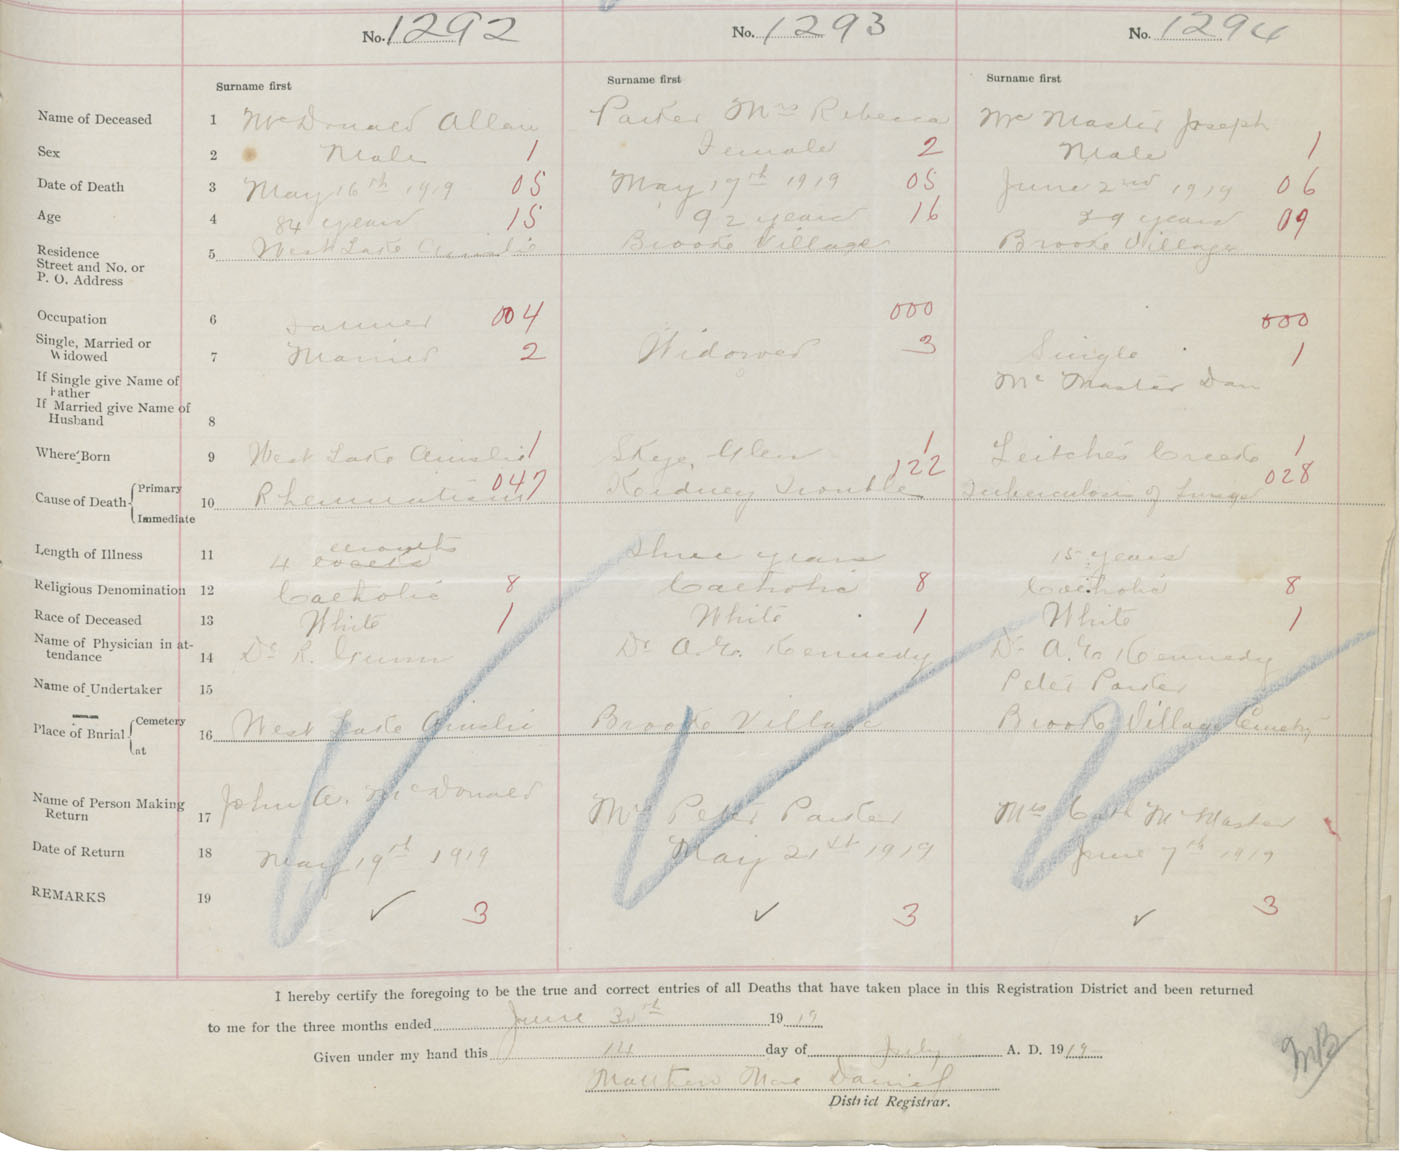 No. 1292 No. 1293 No. 1294
Surname first Surname first Surname first
Name of Deceased 1 McDonald Allan Parker Mrs Rebecca McMaster Joseph
Sex 2 Male 1 Female 2 Male 1
Date of Death 3 May 16th 1919 05 May 17th 1919 05 June 2nd 1919 06
Age 4 84 years 15 92 years 16 29 years 09
Residence
Street and No. or
P. O. Address
5 West Lake Ainslie Brook Village Brook Village
Occupation 6 Farmer 004 000 000
Single, Married or
Widowed
7 Married 2 Widowed 3 Single 1
If Single give Name of
Father
McMaster Dan
If Married give Name of
Husband
8
Where Born 9 West Lake Ainslie 1 Skye Glen 1 Leitches Creek 1
Cause of Death Primary
Immediate
10 Rheumatism 047 Kidney Trouble 122 Tuberculosis of Lungs 028
Length of Illness 11 4 months Three years 15 years
Religious Denomination 12 Catholic 8 Catholic 8 Catholic 8
Race of Deceased 13 White 1 White 1 White 1
Name of Physician in at-
tendance
14 Dr R. Dr A. Kennedy Dr A. Kennedy
Name of Undertaker 15 Peter Parker
Place of Burial Cemetery
at
16 West Lake Ainslie Brook Village Brook Village Cemetry
Name of Person Making
Return
17 John A. McDonald Peter Parker Mrs McMaster
Date of Return 18 May 19th 1919 May 21st 1919 June 7th 1919
REMARKS 19 ✓ 3 ✓ 3 ✓ 3
I hereby certify the foregoing to be the true and correct entries of all Deaths that have taken place in this Registration District and been returned
to me for the three months ended June 30th 1919
Given under my hand this 14 day of July A. D. 1919
Matthew Mac Daniel
District Registrar.
MB